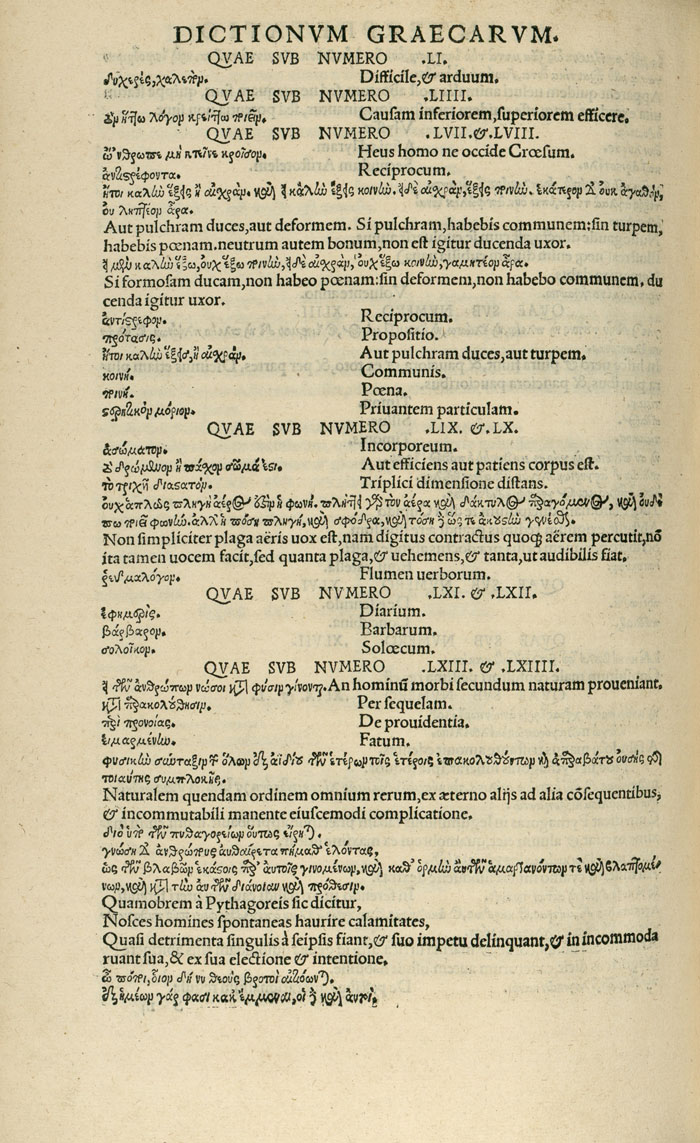 DICTIONVM GRAECARVM.
QVAE SVB NVMERO .LI.
δυχερές, χαλεπὸμ. Difficile, & arduum.
QVAE SVB NVMERO .LIIII.
λόγομ Causam inferiorem, superiorem efficere.
QVAE SVB NVMERO .LVII. & .LVIII.
ὦ νθρωπε μὴ κτεῖνε κροῖσομ. Heus homo ne occide Crœsum.
ἀντιςρέφοντα. Reciprocum.
ἤτοι καλὼ ἕξεις ἢ αἰχράμ. καὶ εἰ καλὼ ἕξεις κοινὼ, εἰ δὲ αἰχράμ, ἕξεις ποινὼ. ἑκάτερομ δ ουκ ἀγαθόμ,
ου ληπτέομ ἄρα.
Aut pulchram duces, aut deformem. Si pulchram, habebis communem: sin turpem,
habebis pœnam. neutrum autem bonum, non est igitur ducenda uxor.
εἰ μὲν καλὼ ἕξω, ουχ ἕξω ποινὼ, εἰ δὲ αἰχράμ, ουχ ἕξω κοινὼ, γαμητέομ ἄρα.
Si formosam ducam, non habeo pœnam: sin deformem, non habebo communem, du
cenda igitur uxor.
ἀντίςρεφομ. Reciprocum.
πρότασις. Propositio.
ἤτοι καλὼ ἕξεις, ἢ αἰχράμ. Aut pulchram duces, aut turpem.
κοινή. Communis.
ποινή. Pœna.
ςορητικὸμ μόριομ. Priuantem particulam.
QVAE SVB NVMERO .LIX. & .LX.
ἀσώματομ. Incorporeum.
δρώμενομ ἢ πάχομ σῶμά ἐςι. Aut efficiens aut patiens corpus est.
τὸ τριχῇ διαςατόμ. Triplici dimensione distans.
ουχ ἁπλῶς πληγὴ ἀέρος ἡ φωνή. πλήττει τὸν ἀέρα καὶ δάκτυλος παραγόμενος, καὶ
φωνὼ. ἀλλ ἡ πόση πληγὴ, καὶ σφόδρα, καὶ τόση
Non simpliciter plaga aëris uox est, nam digitus contractus quoq; aërem percutit, nō
ita tamen uocem facit, sed quanta plaga, & uehemens, & tanta, ut audibilis fiat.
Flumen uerborum.
QVAE SVB NVMERO .LXI. & .LXII.
ἐφημερὶς. Diarium.
βάρβαρομ. Barbarum.
σολοῖκομ. Solœcum.
QVAE SVB NVMERO .LXIII. & .LXIIII.
εἰ τῶν ἀνθρώπωμ νόσοι κατὰ φύσιμ γίνονται. An hominū morbi secundum naturam proueniant.
κατὰ παρακολούθησιμ. Per sequelam.
περὶ προνοίας. De prouidentia.
εἱμαρμένω. Fatum.
φυσικὼ σύνταξιμ ὅλωμ ἐξ ἀϊδίου τῶν ἑτέρωμ τοῖς ἑτέροις ἐπακολουθούντωμ καὶ ἀπαραβάτου ούσης
τοιαύτης συμπλοκῆς.
Naturalem quendam ordinem omnium rerum, ex æterno alijs ad alia cōsequentibus,
& incommutabili manente eiuscemodi complicatione.
διὸ ὑπὸ τῶν πυθαγορείωμ ούτως εἴρηται.
γνώσῃ δ ἀνθρώπους αυθαίρετα πήματ ἑλόντας,
ὡς τῶν βλαβῶμ ἑκάςοις παρ αυτοῖς γινομένωμ, καὶ καθ ὁρμὼ αυτῶν ἁμαρτανόντωμ τὲ καὶ βλαπτομέ
νωμ, καὶ κατὰ τὼ αυτῶν διάνοιαν καὶ πρόθεσιμ.
Quamobrem à Pythagoreis sic dicitur,
Nosces homines spontaneas haurire calamitates,
Quasi detrimenta singulis à seipsis fiant, & suo impetu delinquant, & in incommoda
ruant sua, & ex sua electione & intentione.
ὦ πόποι, οἷομ δή νυ θεοὺς βροτοὶ αἰτιόωνται.
ἐξ ἡμέωμ γάρ φασι κακ ἔμμεναι, οἱ δὲ καὶ αυτοί.